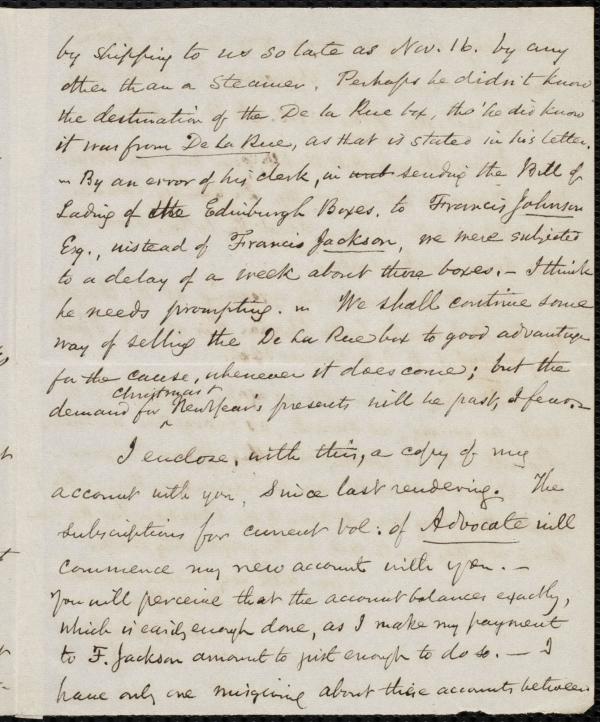 by shipping to us so late as Nov. 16. by any
other than a Steamer. Perhaps he didn't know
the destination of the De la Rue box, tho' he did know
it was from De La Rue, as that is stated in his letter.
– By an error of his clerk, in sending the Bill of
Lading of the Edinburgh Boxes, to Francis Johnson
Esq., instead of Francis Jackson, we were subjected
to a delay of a week about those boxes. – I think
he needs prompting. – We shall contrive some
way of selling the De La Rue box to good advantage
for the cause, whenever it does come; but the
Christmas &
demand for New Year's presents will be past, I fear. –
I enclose, with this, a copy of my
account with you, since last rendering. The
subscriptions for current vol: of Advocate will
commence my new account with you. –
You will perceive that the account balances exactly,
which is easily enough done, as I make my payment
to F. Jackson amount to just enough to do so. – I
have only one misgiving about these accounts between